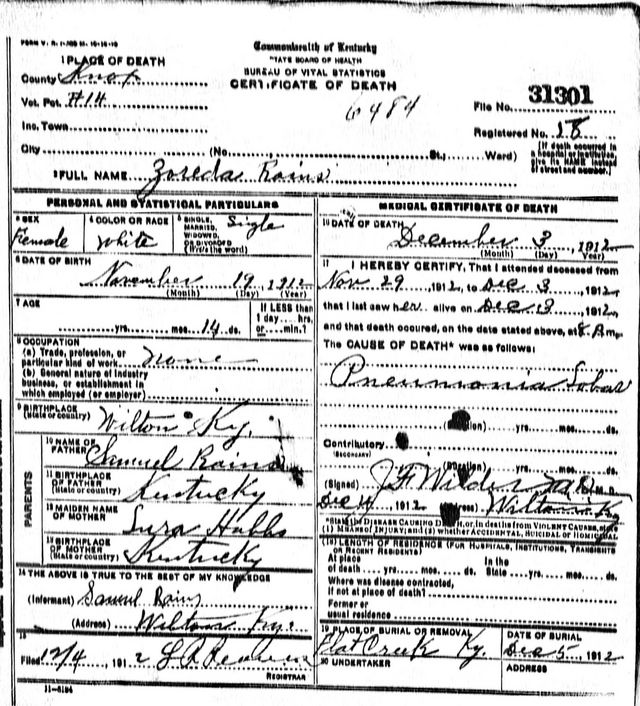 FORM V. S. 1-
Commonwealth of Kentucky
STATE BOARD OF HEALTH
BUREAU OF VITAL STATISTICS
CERTIFICATE OF DEATH
1 PLACE OF DEATH
County Knox
Vot. Pct. #14
Inc. Town
City (No. St., Ward)
6484
File No. 31301
Registered No. 18
(If death occurred in a hospital or institution, give its NAME instead of street and number.)
2 FULL NAME Zoreda Rains
PERSONAL AND STATISTICAL PARTICULARS
3 SEX Female
4 COLOR OR RACE White
5 SINGLE, MARRIED, WIDOWED, OR DIVORCED (Write the word) Single
6 DATE OF BIRTH November 19, 1912
(Month) (Day) (Year)
7 AGE yrs. mos. 14 ds.
If LESS than 1 day hrs. or min.?
8 OCCUPATION
(a) Trade, profession, or particular kind of work none
(b) General nature of Industry business, or establishment in which employed (or employer)
9 BIRTHPLACE (State or country) Wilton Ky.
PARENTS
10 NAME OF FATHER Samuel Rains
11 BIRTHPLACE OF FATHER (State or country) Kentucky
12 MAIDEN NAME OF MOTHER Hubbs
13 BIRTHPLACE OF MOTHER (State or country) Kentucky
14 THE ABOVE IS TRUE TO THE BEST OF MY KNOWLEDGE
(Informant) Samuel Rains
(Address) Wilton Ky.
15
Filed 12/4, 1912
REGISTRAR
11-5184
MEDICAL CERTIFICATE OF DEATH
16 DATE OF DEATH December 3, 1912
(Month) (Day) (Year)
17 I HEREBY CERTIFY, That I attended deceased from
Nov 29, 1912, to Dec 3, 1912
that I last saw her alive on Dec 3, 1912,
and that death occured, on the date stated above, at 8 A.m.
The CAUSE OF DEATH* was as follows:
Pneumonia Lobar
(Duration) yrs. mos. ds.
Contributory
(SECONDARY)
(Duration) yrs. mos. ds.
(Signed) J F Wilder M. D.
Dec 1912 (Address) Wilton Ky
*State the DISEASE CAUSING DEATH, or, in deaths from VIOLENT CAUSES, state (1) MEANS OF INJURY; and (2) whether ACCIDENTAL, SUICIDAL or HOMICIDAL
18 LENGTH OF RESIDENCE (FOR HOSPITALS, INSTITUTIONS, TRANSIENTS OR RECENT RESIDENTS)
At place of death yrs. mos. ds. In the State yrs. mos. ds.
Where was disease contracted, if not at place of death?
Former or usual residence
19 PLACE OF BURIAL OR REMOVAL Flat Creek Ky.
DATE OF BURIAL Dec 5, 1912
20 UNDERTAKER
ADDRESS